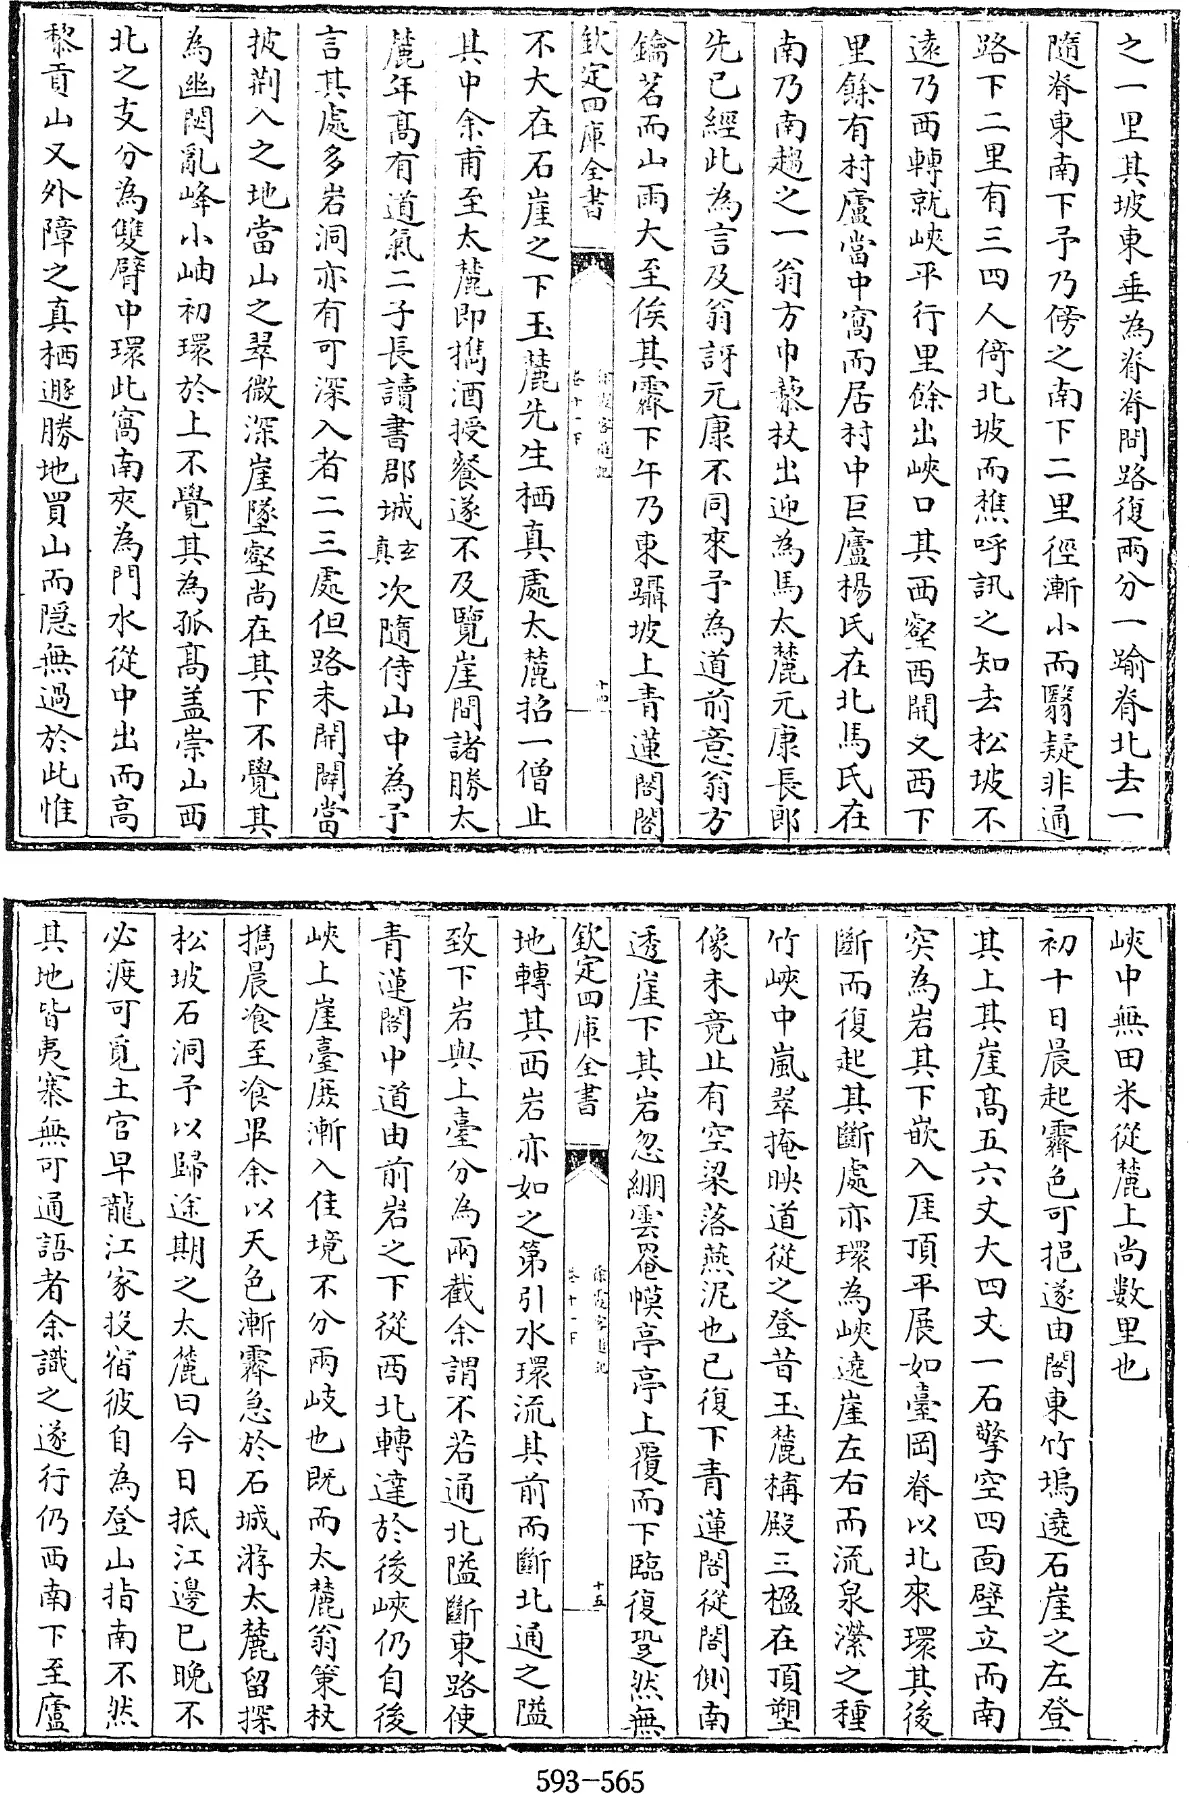 之一里其坡東垂為脊脊間路復兩分一踰脊北去一
隨脊東南下予乃傍之南下二里徑漸小而翳疑非通
路下二里有三四人倚北坡而樵呼訊之知去松坡不
遠乃西轉就峽平行里餘出峽口其西壑西開又西下
里餘有村廬當中窩而居村中巨廬楊氏在北馬氏在
南乃南趨之一翁方巾藜杖出迎為馬太麓元康長郎
先已經此為言及翁訝元康不同來予為道前意翁方
鑰茗而山雨大至俟其霽下午乃東躡坡上青蓮閣閣
欽定四庫全書
徐霞客遊記
卷十一下
十四
不大在石崖之下玉麓先生栖真處太麓招一僧止
其中余甫至太麓即攜酒授餐遂不及覽崖間諸勝太
麓年高有道氣二子長讀書郡城玄真次隨侍山中為予
言其處多岩洞亦有可深入者二三處但路未開闢當
披荆入之地當山之翠微深崖墜壑尚在其下不覺其
為幽閟亂峰小岫初環於上不覺其為孤高盖崇山西
北之支分為雙臂中環此窩南夾為門水從中出而高
黎貢山又外障之真栖遯勝地買山而隠無過於此惟
峽中無田米從麓上尚數里也
初十日晨起霽色可挹遂由閣東竹塢遶石崖之左登
其上其崖高五六丈大四丈一石擎空四面壁立而南
突為岩其下嵌入厓頂平展如臺岡脊以北來環其後
斷而復起其斷處亦環為峽遶崖左右而流泉瀠之種
竹峽中嵐翠掩映道從之登昔玉麓構殿三楹在頂塑
像未竟止有空梁落燕泥也已復下青蓮閣從閣側南
透崖下其岩忽綳雲罨幙亭亭上覆而下臨復跫然無
欽定四庫全書
徐霞客遊記
卷十一下
十五
地轉其西岩亦如之第引水環流其前而斷北通之隘
致下岩與上臺分為兩截余謂不若通北隘斷東路使
青蓮閣中道由前岩之下從西北轉達於後峽仍自後
峽上崖臺庶漸入佳境不分兩岐也既而太麓翁策杖
攜晨飡至飡畢余以天色漸霽急於石城游太麓留探
松坡石洞予以歸途期之太麓曰今日抵江邊已晚不
必渡可覓土官早龍江家投宿彼自為登山指南不然
其地皆夷寨無可通語者余識之遂行仍西南下至廬
593-565